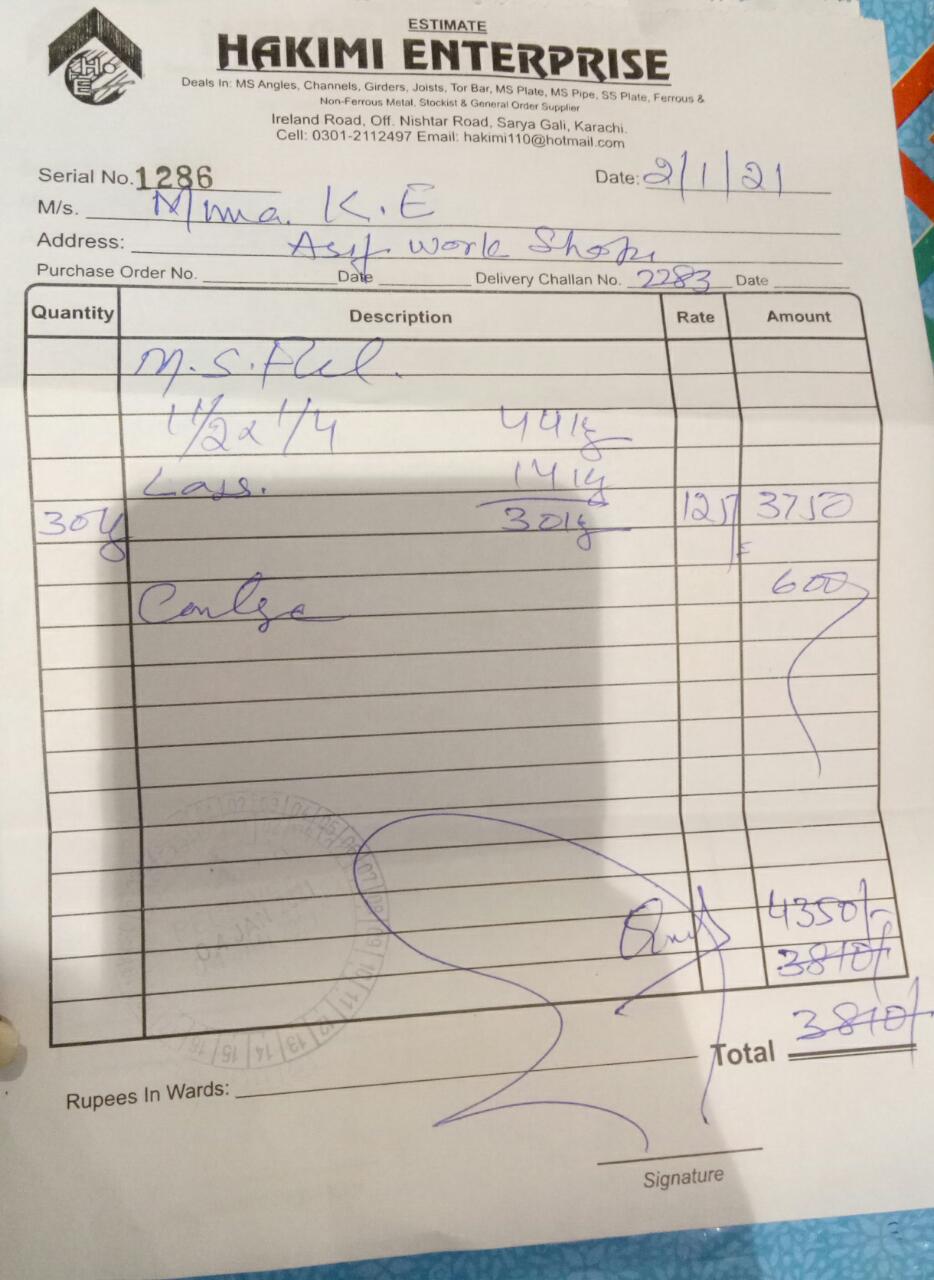 ESTIMATE
HAKIMI ENTERPRISE
Deals In: MS Angles, Channels, Girders, Joists, Tor Bar, MS Plate, MS Pipe, SS Plate, Ferrous &
Non-Ferrous Metal, Stockist & General Order Supplier
Ireland Road, Off. Nishtar Road, Sarya Gali, Karachi.
Cell: 0301-2112497 Email: hakimi110@hotmail.com
Serial No. 1286 Date: 2/1/21
M/s. K.E
Address: Asif Work Shop
Purchase Order No. Date Delivery Challan No. 2283 Date
Quantity Description Rate Amount
M.S.
1 1/2 x 1/4 44kg
Lass. 14kg
30kg 30kg 125/ 3750
600
4350/-
3810/-
Total 3810/-
Rupees In Wards:
Signature